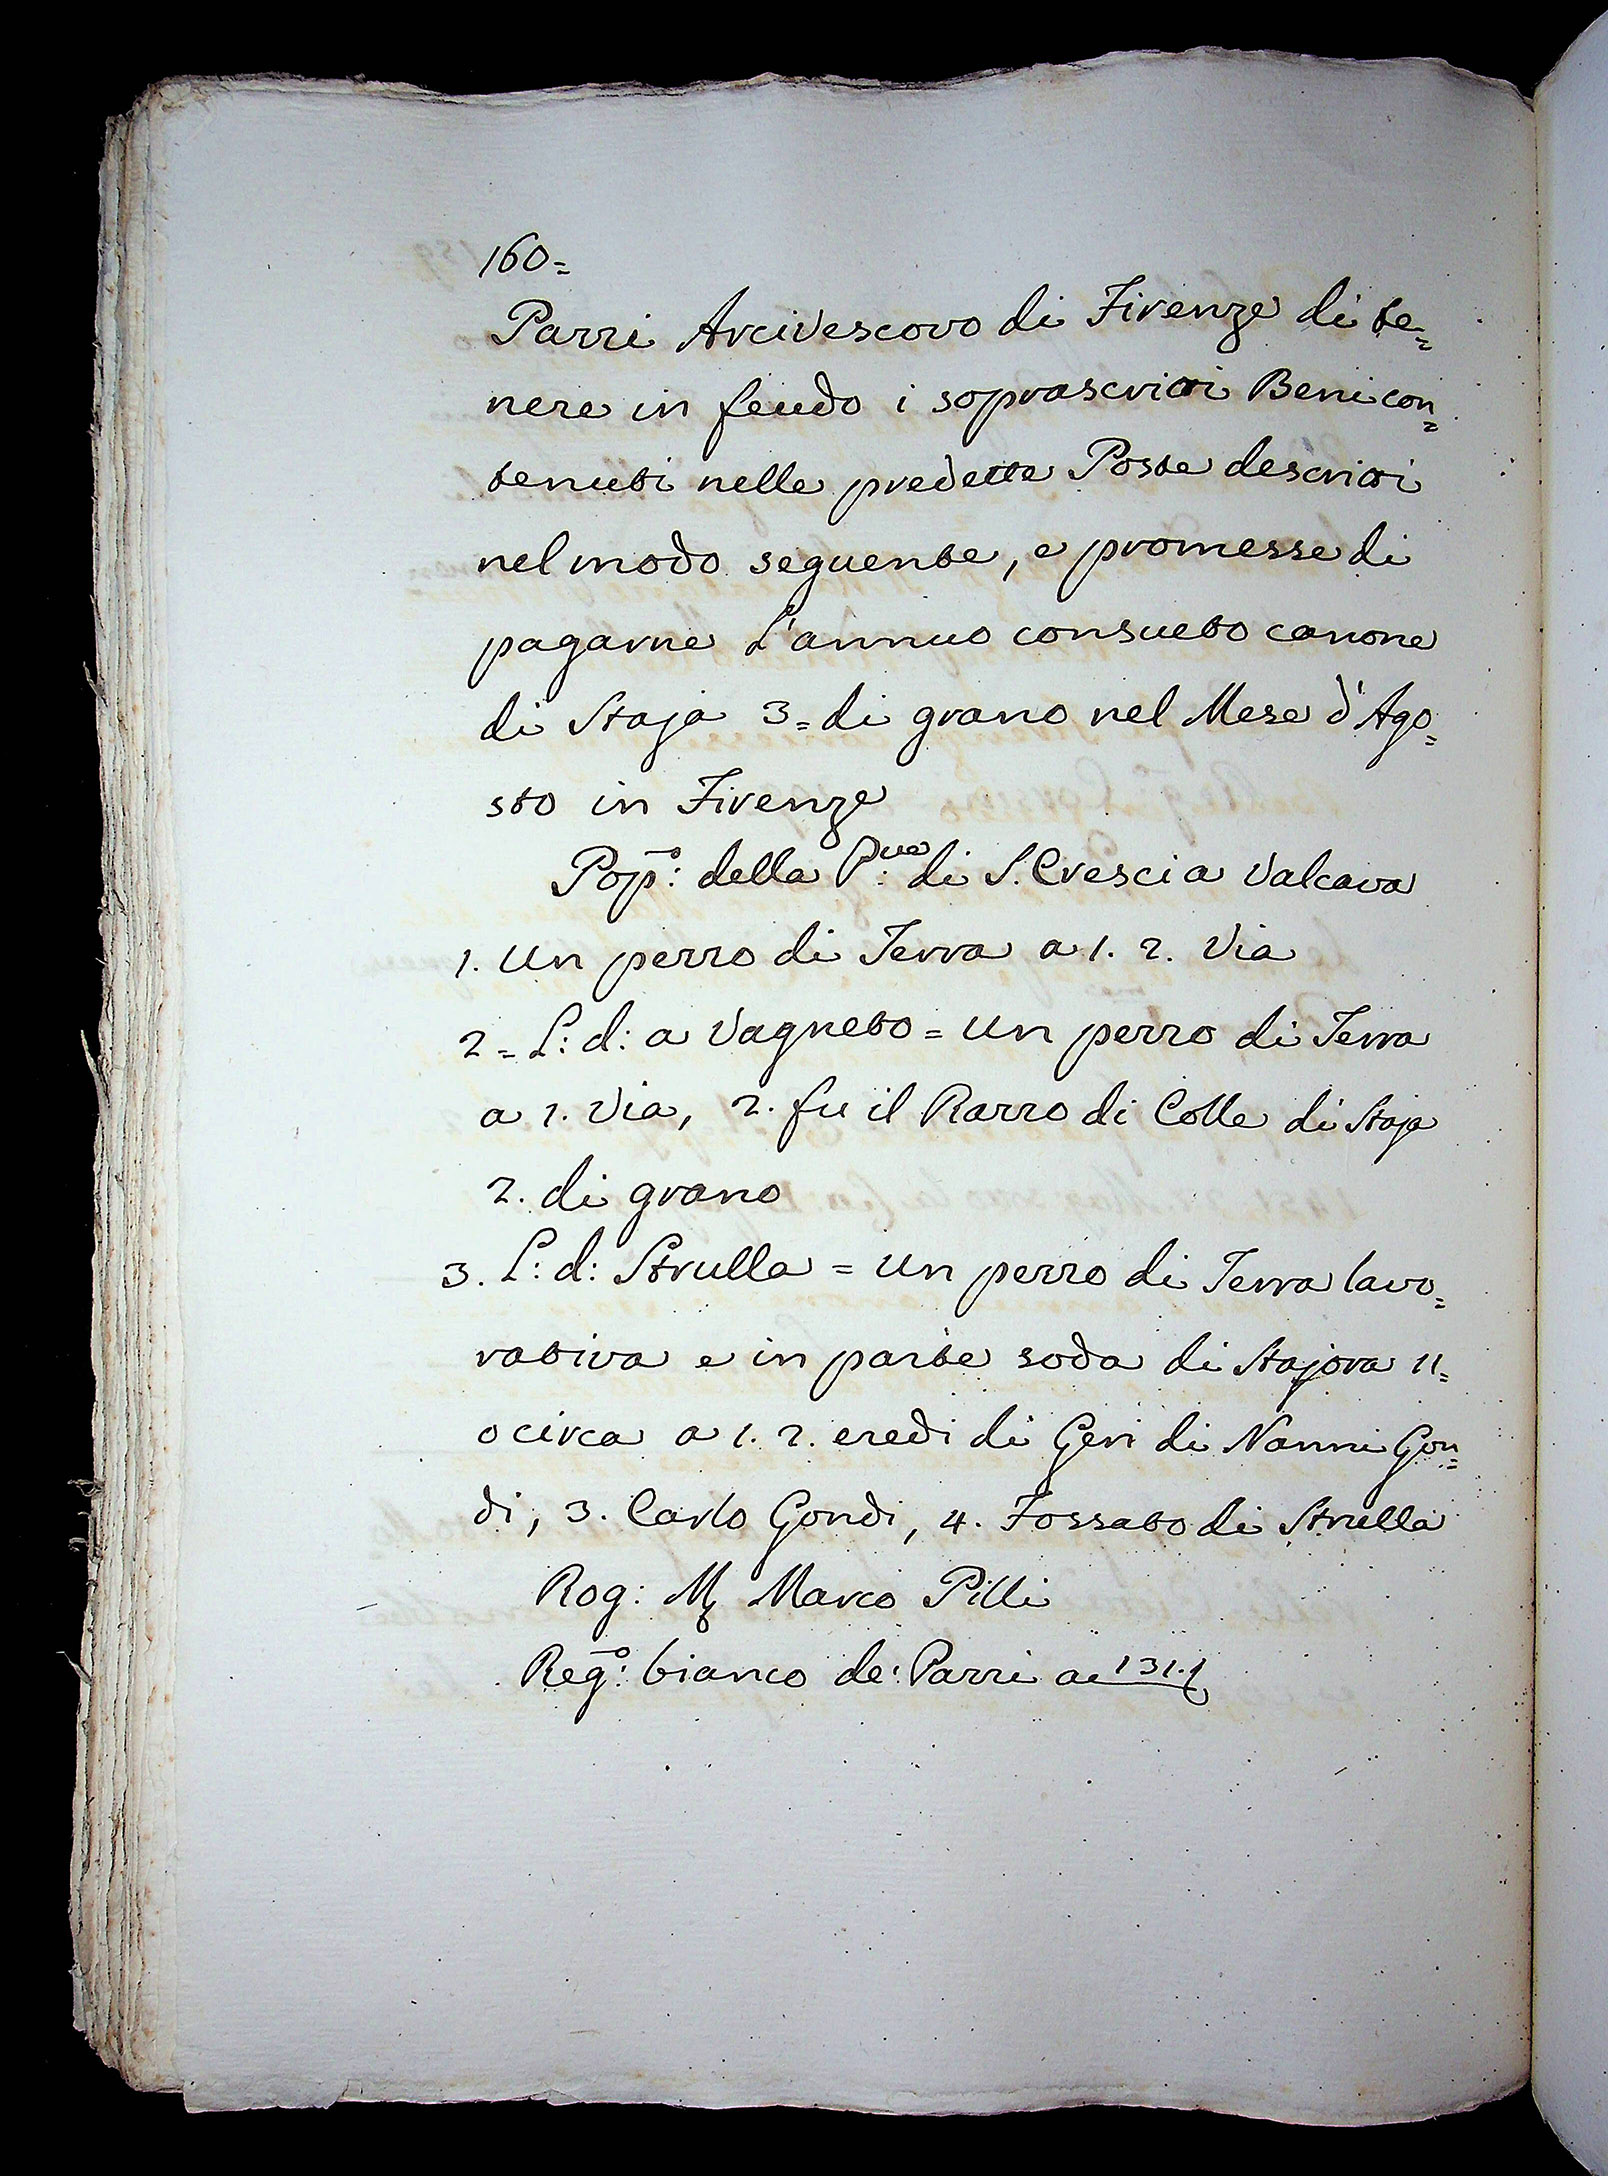 160=
Pazzi Arcivescovo di Firenze di te=
nere in feudo i soprascritti Beni con=
tenuti nelle predette Poste descritti
nel modo seguente, e promesse di
pagarne l'annuo consueto canone
di Staja 3= di grano nel Mese d'Ago=
sto in Firenze
Pop̄o: della P:ve di S. Cresci a Valcava
1. Un pezzo di Terra a 1. 2. Via
2= L: d: a Vagneto = Un pezzo di Terra
a 1. Via, 2. fu il Razzo di Colle di Staja
2. di grano
3. L: d: Strulla = Un pezzo di Terra lavo=
rativa e in parte soda di Stajora 11=
o circa a 1. 2. eredi di Geri di Nanni Gon=
di, 3. Carlo Gondi, 4. Fossato di Strulla
Rog: M Marco Pilli
Reg̃o: bianco de: Pazzi ae 131.